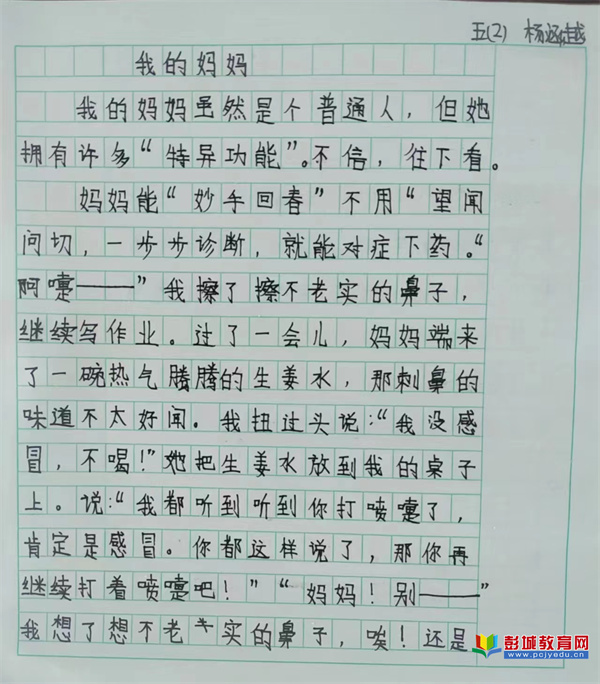 五(2) 杨涵越
我的妈妈
我的妈妈虽然是个普通人，但她
拥有许多“特异功能”。不信，往下看。
妈妈能“妙手回春”不用“望闻
问切，一步步诊断，就能对症下药。“
阿嚏——”我擦了擦不老实的鼻子，
继续写作业。过了一会儿，妈妈端来
了一碗热气腾腾的生姜水，那刺鼻的
味道不太好闻。我扭过头说：“我没感
冒，不喝！”她把生姜水放到我的桌子
上。说：“我都听到听到你打喷嚏了，
肯定是感冒。你都这样说了，那你再
继续打着喷嚏吧！”“妈妈！别——”
我想了想不老实的鼻子，唉！还是
彭城教育网
www.pcjyedu.cn